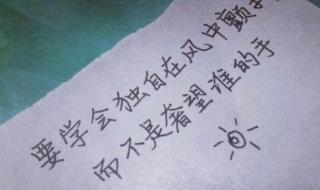 要学会独自在风中颤
而不是奢望谁的手